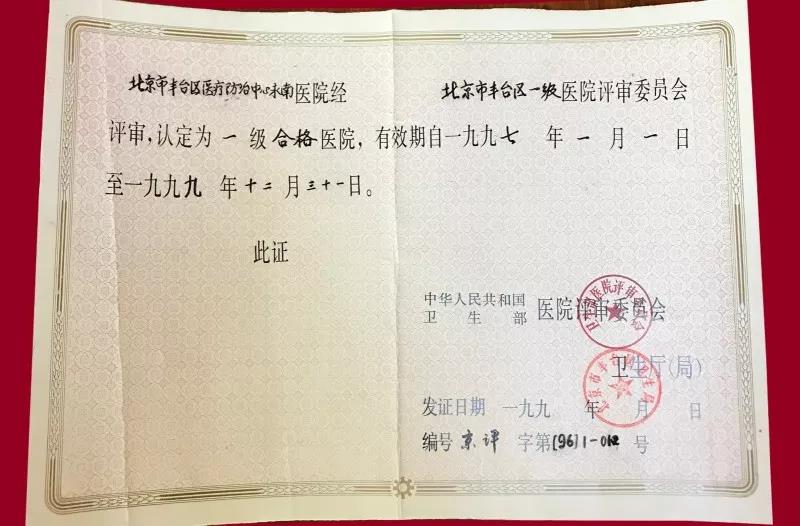 北京市丰台区医疗防治中心永南医院经 北京市丰台区一级医院评审委员会
评审，认定为一级合格医院，有效期自一九九七年一月一日
至一九九九年十二月三十一日。
此证
中华人民共和国
卫生部 医院评审委员会
卫生厅(局)
北京市丰台区卫生局
发证日期 一九九 年 月 日
编号 京评 字第[96]1-012号